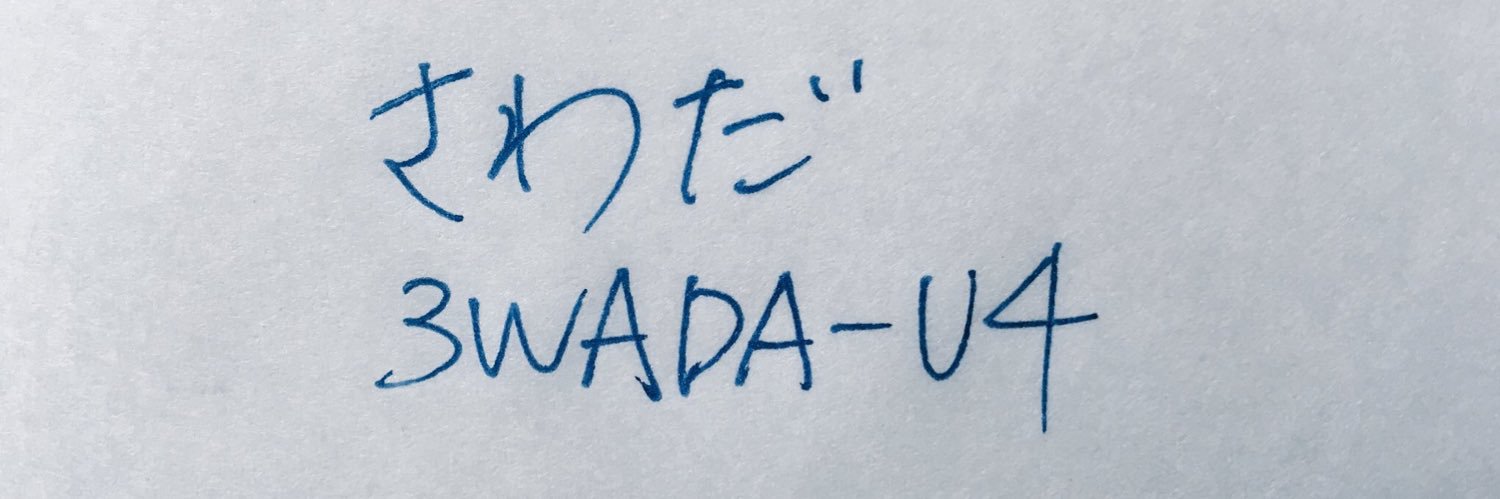 さわだ
3WADA-U4